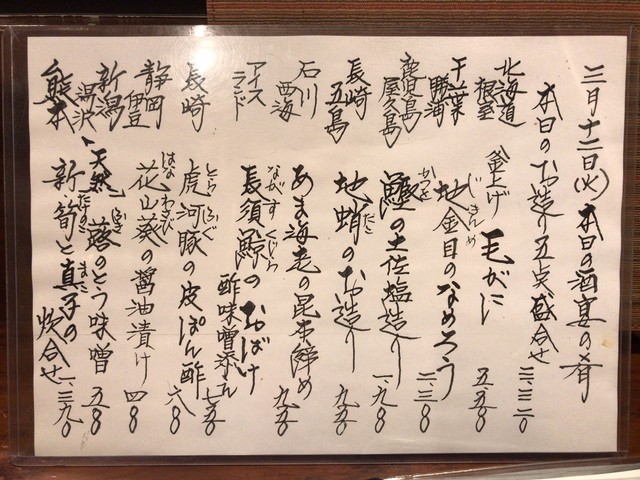 三月十二日(火)本日の酒宴の肴
本日のお造り五点盛合せ 三、三二〇
北海道 根室 釜上げ 毛がに 五、五〇
千葉 勝浦 地金目のなめろう 二、三〇
じきんめ
鹿児島 屋久島 鰹の土佐塩造り 一、九〇
かつを
長崎 五島 地蛸のお造り 九五〇
だこ
石川 西海 あま海老の昆布締め 九五〇
アイスランド 長須鯨のおばけ 酢味噌添え 七五〇
ながすくじら
長崎 虎河豚の皮ぽん酢 六八〇
とらふぐ
静岡 伊豆 花山葵の醤油漬け 四八〇
はなわさび
新潟 天然蕗のとう味噌 五八〇
ふき
熊本、丹波 新筍と真子の炊合せ 一、三九〇
たけのこ まこ